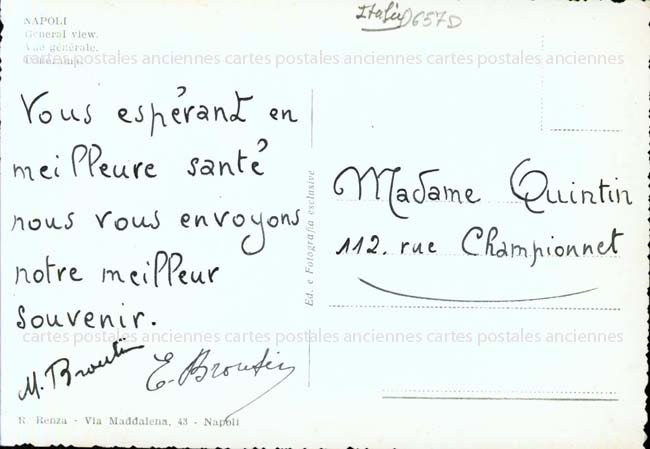 NAPOLI
General view.
Vue générale.
Italie 0657D
cartes postales anciennes cartes postales anciennes cartes postales anciennes
Vous espérant en
meilleure santé
nous vous envoyons
notre meilleur
souvenir.
M. Broutin
E. Broutin
R. Renza - Via Maddalena, 43 - Napoli
Ed. e Fotografia esclusive
Madame Quintin
112. rue Championnet
cartes postales anciennes cartes postales anciennes cartes postales anciennes